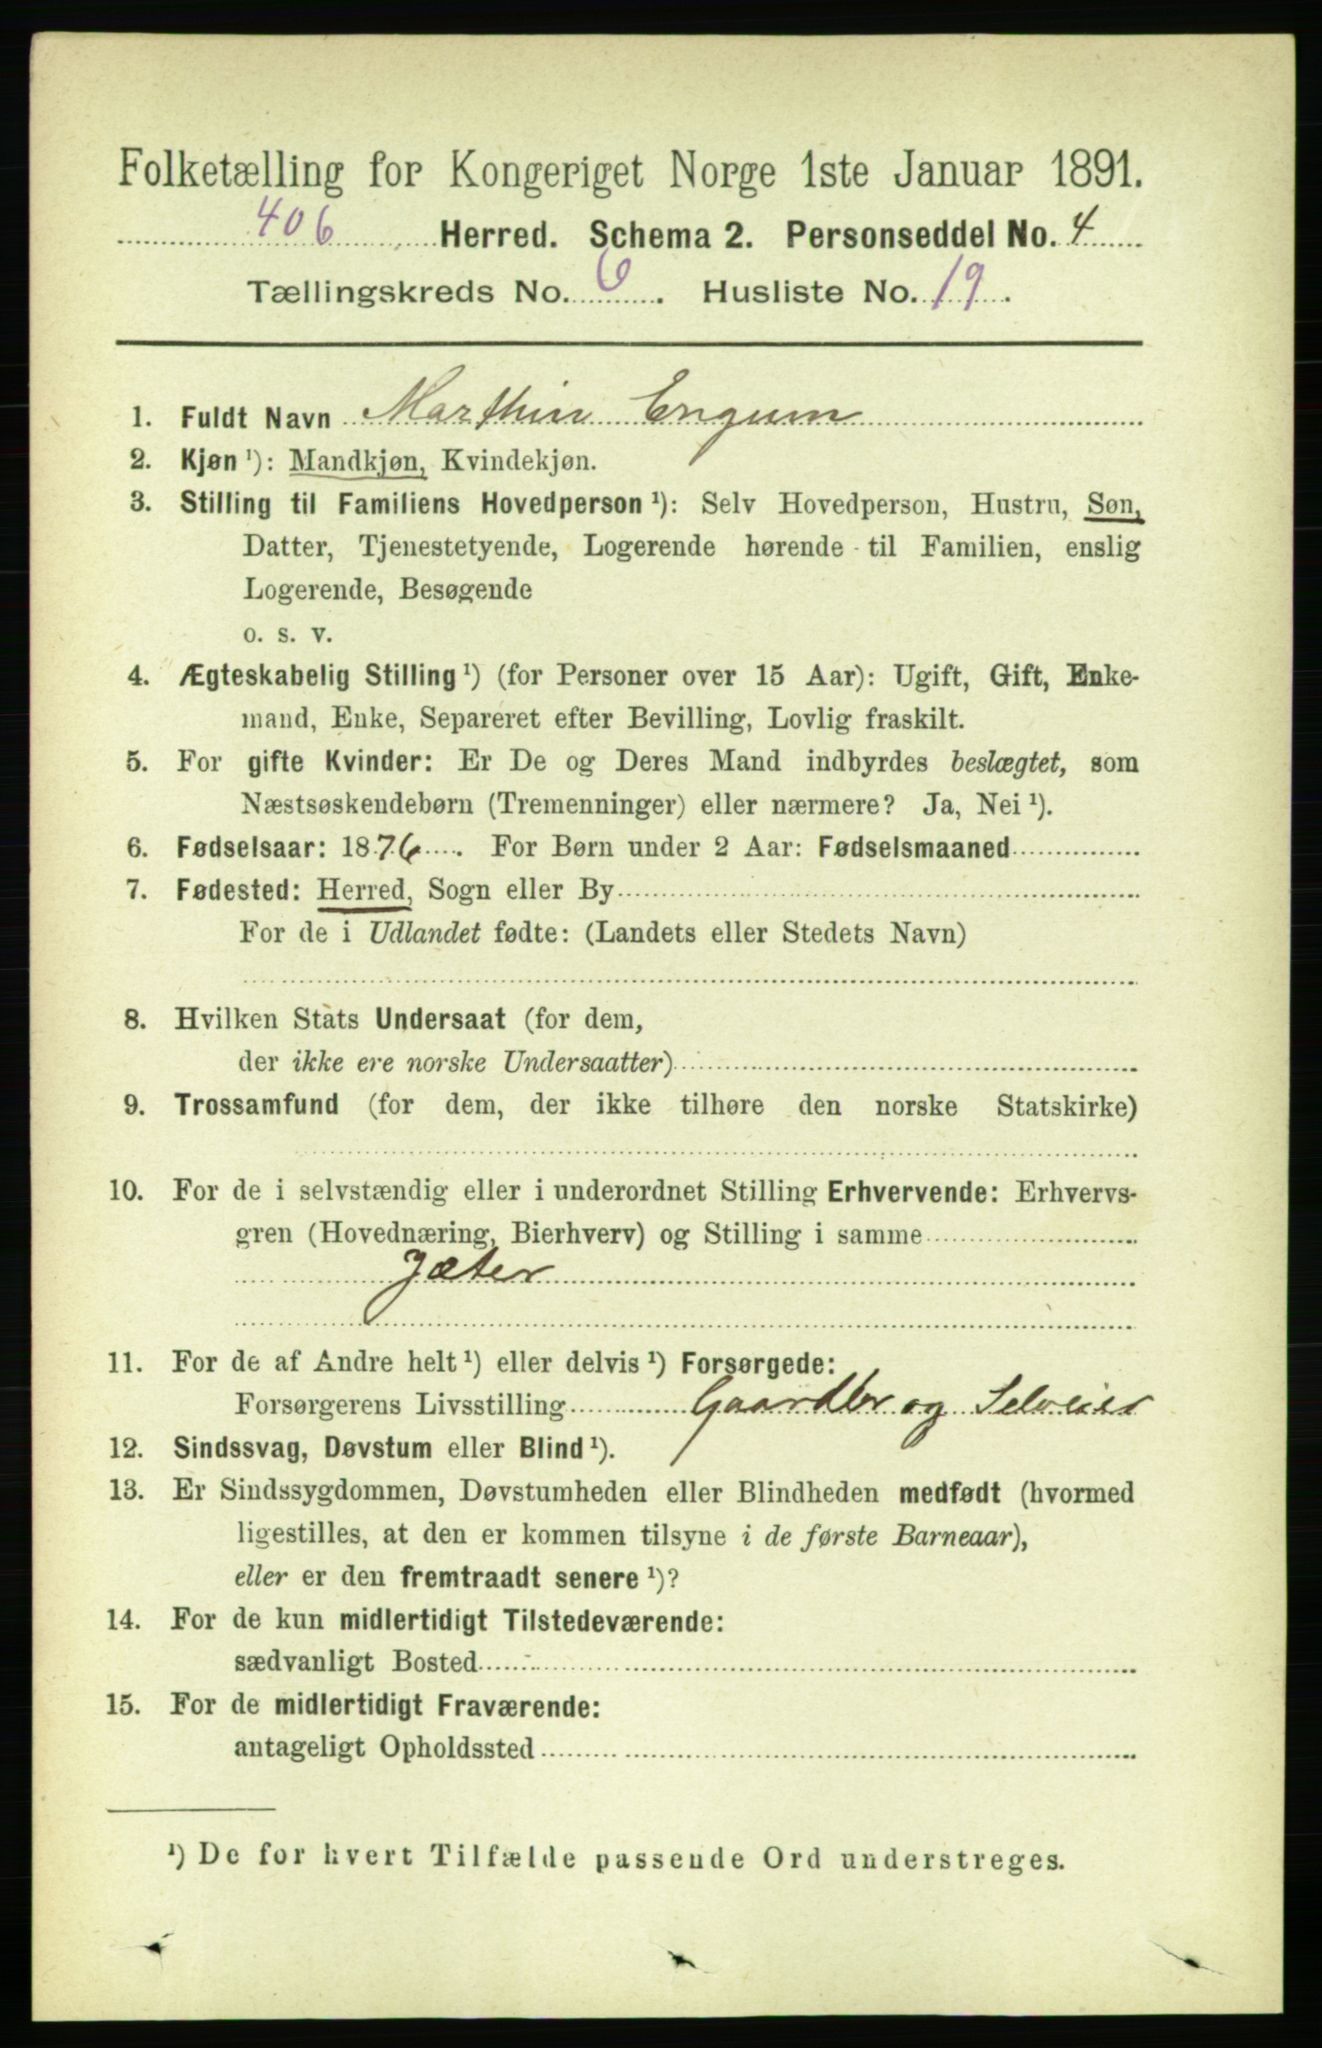 Folketælling for Kongeriget Norge 1ste Januar 1891.
406 Herred. Schema 2. Personseddel No. 4
Tællingskreds No. 6. Husliste No. 19.
1. Fuldt Navn Marthin Engum
2. Kjøn ¹): Mandkjøn, Kvindekjøn.
3. Stilling til Familiens Hovedperson ¹): Selv Hovedperson, Hustru, Søn,
Datter, Tjenestetyende, Logerende hørende til Familien, enslig
Logerende, Besøgende
o. s. v.
4. Ægteskabelig Stilling ¹) (for Personer over 15 Aar): Ugift, Gift, Enke-
mand, Enke, Separeret efter Bevilling, Lovlig fraskilt.
5. For gifte Kvinder: Er De og Deres Mand indbyrdes beslægtet, som
Næstsøskendebørn (Tremenninger) eller nærmere? Ja, Nei ¹).
6. Fødselsaar: 1876. For Børn under 2 Aar: Fødselsmaaned
7. Fødested: Herred, Sogn eller By
For de i Udlandet fødte: (Landets eller Stedets Navn)
8. Hvilken Stats Undersaat (for dem,
der ikke ere norske Undersaatter)
9. Trossamfund (for dem, der ikke tilhøre den norske Statskirke)
10. For de i selvstændig eller i underordnet Stilling Erhvervende: Erhvervs-
gren (Hovednæring, Bierhverv) og Stilling i samme
Jæter
11. For de af Andre helt ¹) eller delvis ¹) Forsørgede:
Forsørgerens Livsstilling Gaardbr og Selveier
12. Sindssvag, Døvstum eller Blind ¹).
13. Er Sindssygdommen, Døvstumheden eller Blindheden medfødt (hvormed
ligestilles, at den er kommen tilsyne i de første Barneaar),
eller er den fremtraadt senere ¹)?
14. For de kun midlertidigt Tilstedeværende:
sædvanligt Bosted
15. For de midlertidigt Fraværende:
antageligt Opholdssted
¹) De for hvert Tilfælde passende Ord understreges.